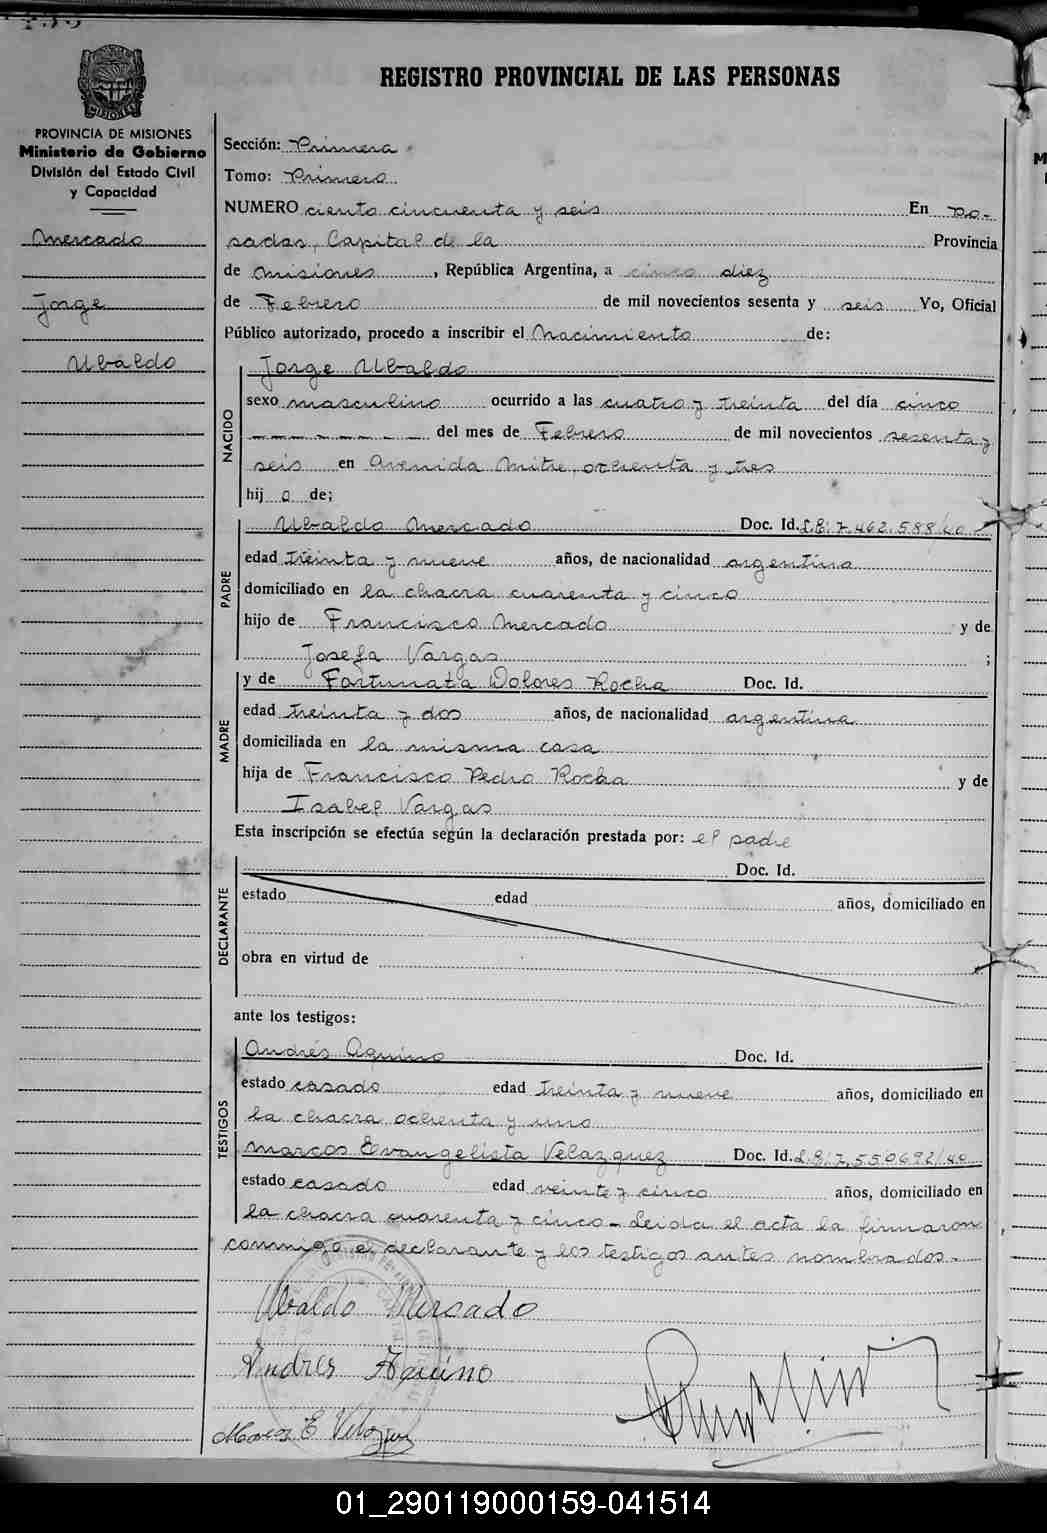 REGISTRO PROVINCIAL DE LAS PERSONAS
MISIONES
PROVINCIA DE MISIONES
Ministerio de Gobierno
División del Estado Civil
y Capacidad
Mercado
Jorge
Ubaldo
Sección: Primera
Tomo: Primero
NUMERO ciento cincuenta y seis En Po-
sadas, Capital de la Provincia
de Misiones, República Argentina, a cinco diez
de Febrero de mil novecientos sesenta y seis Yo, Oficial
Público autorizado, procedo a inscribir el Nacimiento de:
NACIDO
Jorge Ubaldo
sexo masculino ocurrido a las cuatro y treinta del día cinco
del mes de Febrero de mil novecientos sesenta y
seis en Avenida Mitre, ochenta y tres
hij o de;
PADRE
Ubaldo Mercado Doc. Id. L.E: 7.462.588/40
edad treinta y nueve años, de nacionalidad argentina
domiciliado en la chacra cuarenta y cinco
hijo de Francisco Mercado y de
Josefa Vargas ;
MADRE
y de Fortunata Dolores Rocha Doc. Id.
edad treinta y dos años, de nacionalidad argentina
domiciliada en la misma casa
hija de Francisco Pedro Rocha y de
Isabel Vargas
Esta inscripción se efectúa según la declaración prestada por: el padre
DECLARANTE
Doc. Id.
estado edad años, domiciliado en
obra en virtud de
ante los testigos:
TESTIGOS
Andrés Aquino Doc. Id.
estado casado edad treinta y nueve años, domiciliado en
la chacra ochenta y uno
Marcos Evangelista Velazquez Doc. Id. L.E: 7.550692/40
estado casado edad veinte y cinco años, domiciliado en
la chacra cuarenta y cinco - Leida el acta la firmaron
conmigo el declarante y los testigos antes nombrados.-
Ubaldo Mercado
Andres Aquino
Marcos E Velazquez
01_290119000159-041514